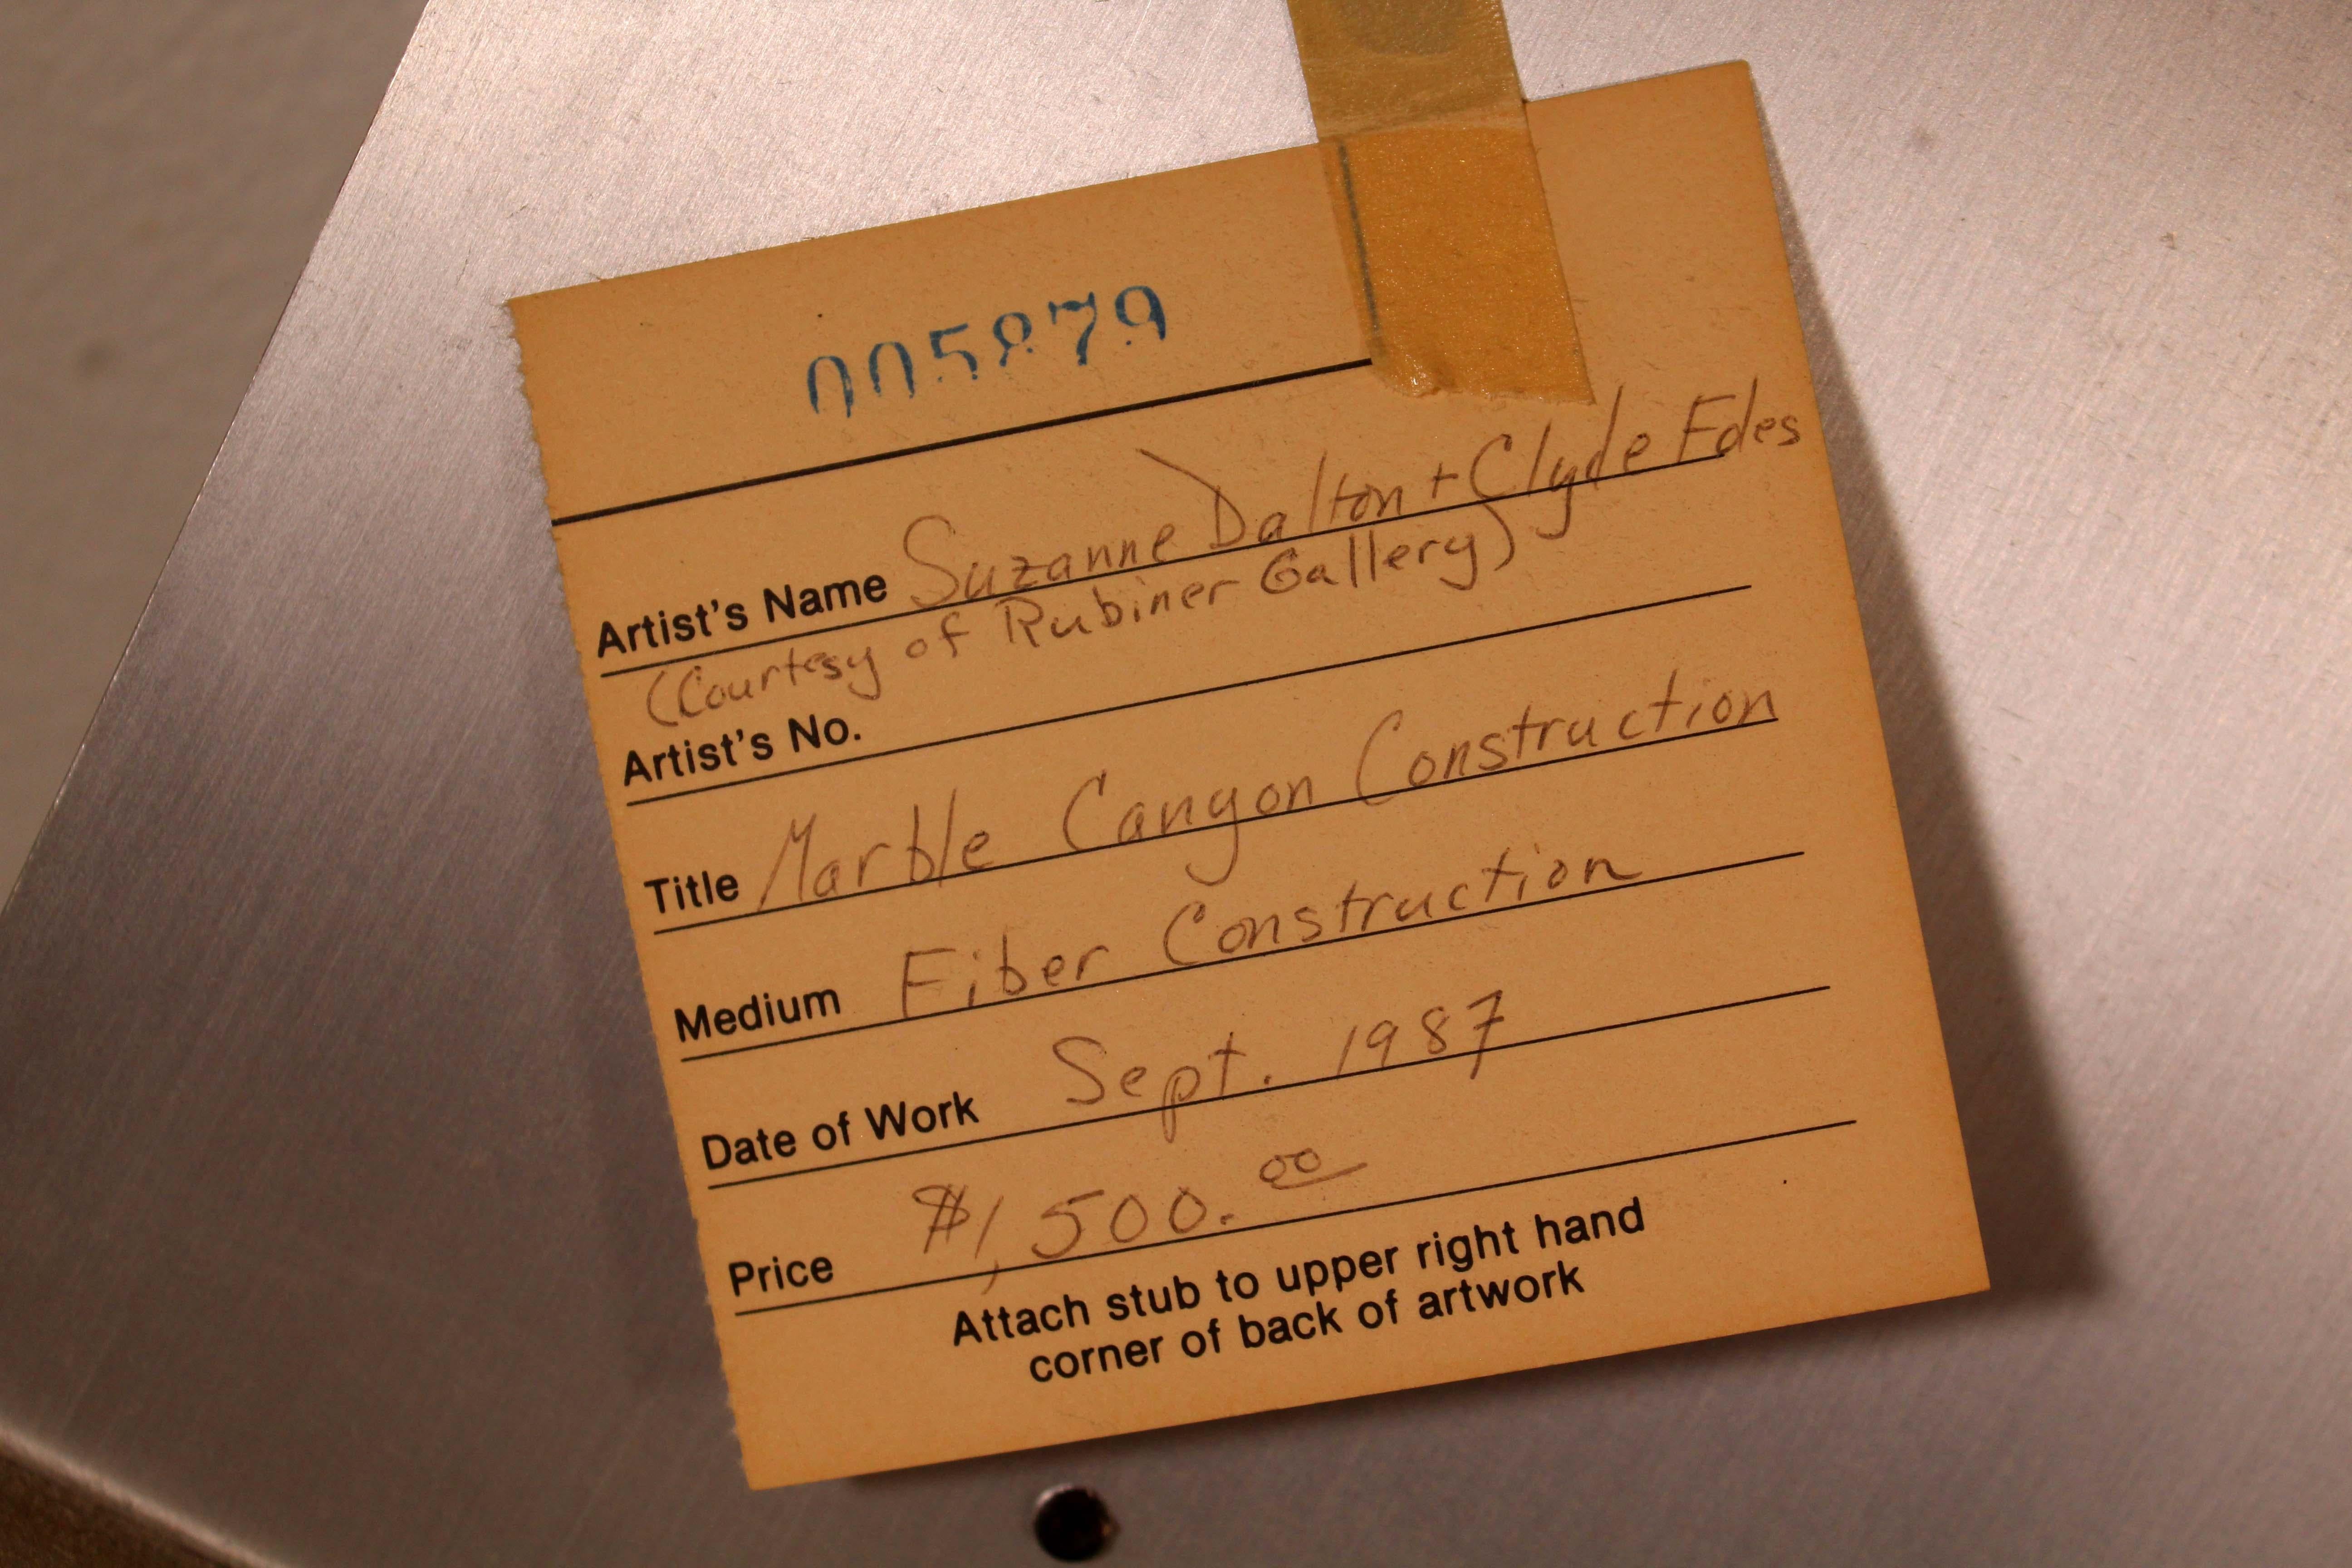 005879
Artist's Name Suzanne Dalton + Clyde Foles
(Courtesy of Rubiner Gallery)
Artist's No.
Title Marble Canyon Construction
Medium Fiber Construction
Date of Work Sept. 1987
Price $1,500.00
Attach stub to upper right hand
corner of back of artwork